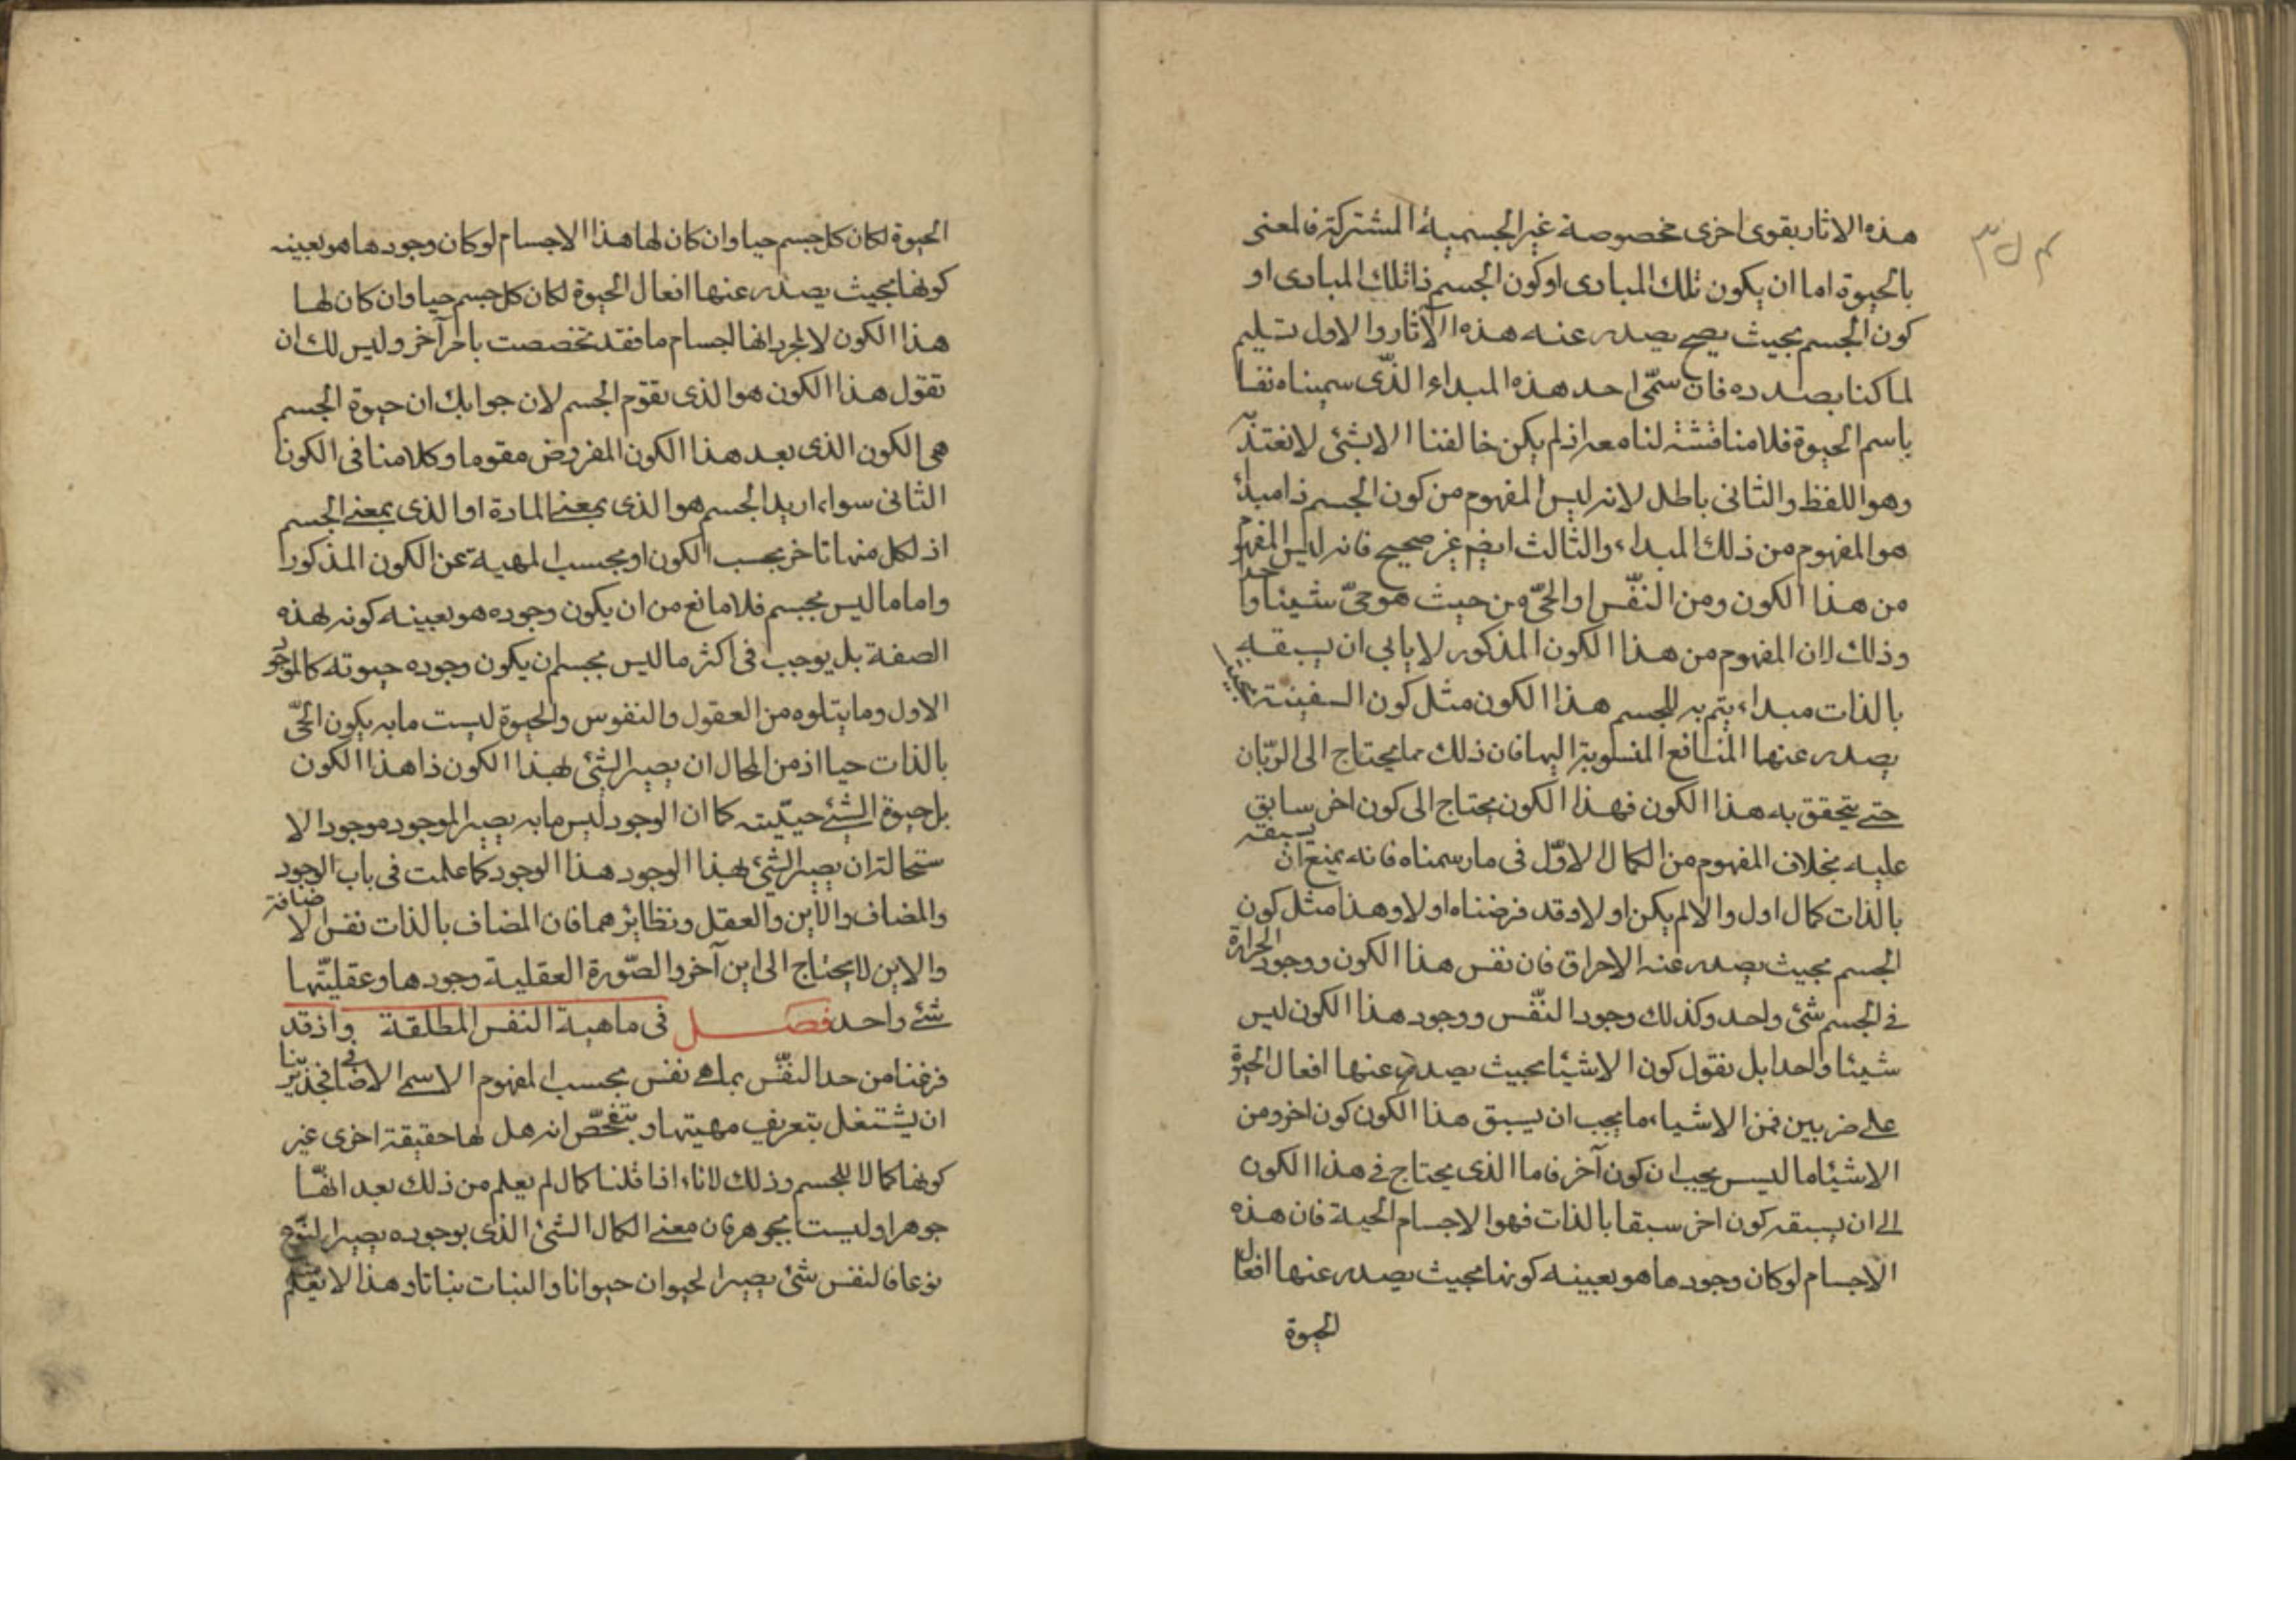 هذه الاثار بقوى اخرى مخصوصة غير الجسمية المشتركة فالمعنى
بالحيوة اما ان يكون تلك المبادى او كون الجسم ذا تلك المبادى او
كون الجسم بحيث يصح يصدر عنه هذه الآثار والاول تسليم
لما كنا بصدده فان سمّى احد هذه المبداء الذّى سميناه نفسا
باسم الحيوة فلا مناقشة لنا معه اذ لم يكن خالفنا الا بشئ لا نعتد به
وهو اللفظ والثانى باطل لانه ليس المفهوم من كون الجسم ذا مبدأ
هو المفهوم من ذلك المبداء والثالث ايضم غير صحيح فانه ليس المفهوم
من هذا الكون ومن النّفس او الحىّ من حيث هو حىّ شيئا واحدا
وذلك لان المفهوم من هذا الكون المذكور لا يابى ان يسبقه
بالذات مبداء يتم به للجسم هذا الكون مثل كون السفينة بحيث
يصدر عنها المنافع المنسوبة اليها فان ذلك مما يحتاج الى الربّان
حتى يتحقق به هذا الكون فهذا الكون يحتاج الى كون اخر سابق
عليه بخلاف المفهوم من الكمال الاوّل فى ما رسمناه فانه يمنع ان يسبقه
بالذات كمال اول والا لم يكن اولا وقد فرضناه اولا وهذا مثل كون
الجسم بحيث يصدر عنه الاحراق فان نفس هذا الكون ووجود الحرارة
فى الجسم شئ واحد وكذلك وجود النّفس ووجود هذا الكون ليس
شيئا واحدا بل نقول كون الاشيئا بحيث يصدر عنها افعال الحيوة
على ضربين فمن الاشياء ما يجب ان يسبق هذا الكون كون اخر ومن
الاشيئا ما ليس يجب ان كون آخر فاما الذى يحتاج فى هذا الكون
الى ان يسبقه كون اخر سبقا بالذات فهو الاجسام الحية فان هذه
الاجسام لو كان وجودها هو بعينه كونها بحيث يصدر عنها افعال
الحيوة
الحيوة لكان كل جسم حيا وان كان لها هذا الاجسام لو كان وجودها هو بعينه
كونها بحيث يصدر عنها افعال الحيوة لكان كل جسم حيا وان كان لها
هذا الكون لا لمجرد انها الجسام ما فقد تخصصت بامر آخر وليس لك ان
تقول هذا الكون هو الذى يقوم الجسم لان جوابك ان حيوة الجسم
هى الكون الذى بعد هذا الكون المفروض مقوما وكلامنا فى الكون
الثانى سواء اريد الجسم هو الذى بمعنى المادة او الذى بمعنى الجسم
اذ لكل منها تاخر بحسب الكون او بحسب المهية عن الكون المذكور
واما ما ليس بجسم فلا مانع من ان يكون وجوده هو بعينه كونه لهذه
الصفة بل يوجب فى اكثر ما ليس بجسم ان يكون وجوده حيوته كالموجود
الاول وما يتلوه من العقول والنفوس والحيوة ليست ما به يكون الحىّ
بالذات حيا اذ من المحال ان يصير الشئ بهذا الكون ذا هذا الكون
بل حيوة الشئ حيّيته كما ان الوجود ليس ما به يصير الموجود موجودا لا
ستحالة ان يصير الشئ بهذا الوجود هذا الوجود كما علمت فى باب الوجود
والمضاف والاين والعقل ونظائرهما فان المضاف بالذات نفس الاضافة
والاين لا يحتاج الى اين آخر والصّورة العقلية وجودها وعقليّتها
شئ واحد فصل فى ماهية النفس المطلقة واذ قد
فرغنا من حد النفّس بما هى نفس بحسب المفهوم الاسم الاضافى فجدير بنا
ان يشتغل بتعريف مهيتها و يتفحّص انه هل لها حقيقة اخرى غير
كونها كمالا للجسم وذلك لانا اذا قلنا كمال لم يعلم من ذلك بعد انهّا
جوهرا وليست بجوهر فان معنى الكمال الشئ الذى بوجوده يصير النّوع
نوعا فالنفس شئ يصير الحيوان حيوانا والنبات نباتا وهذا لا يعلم